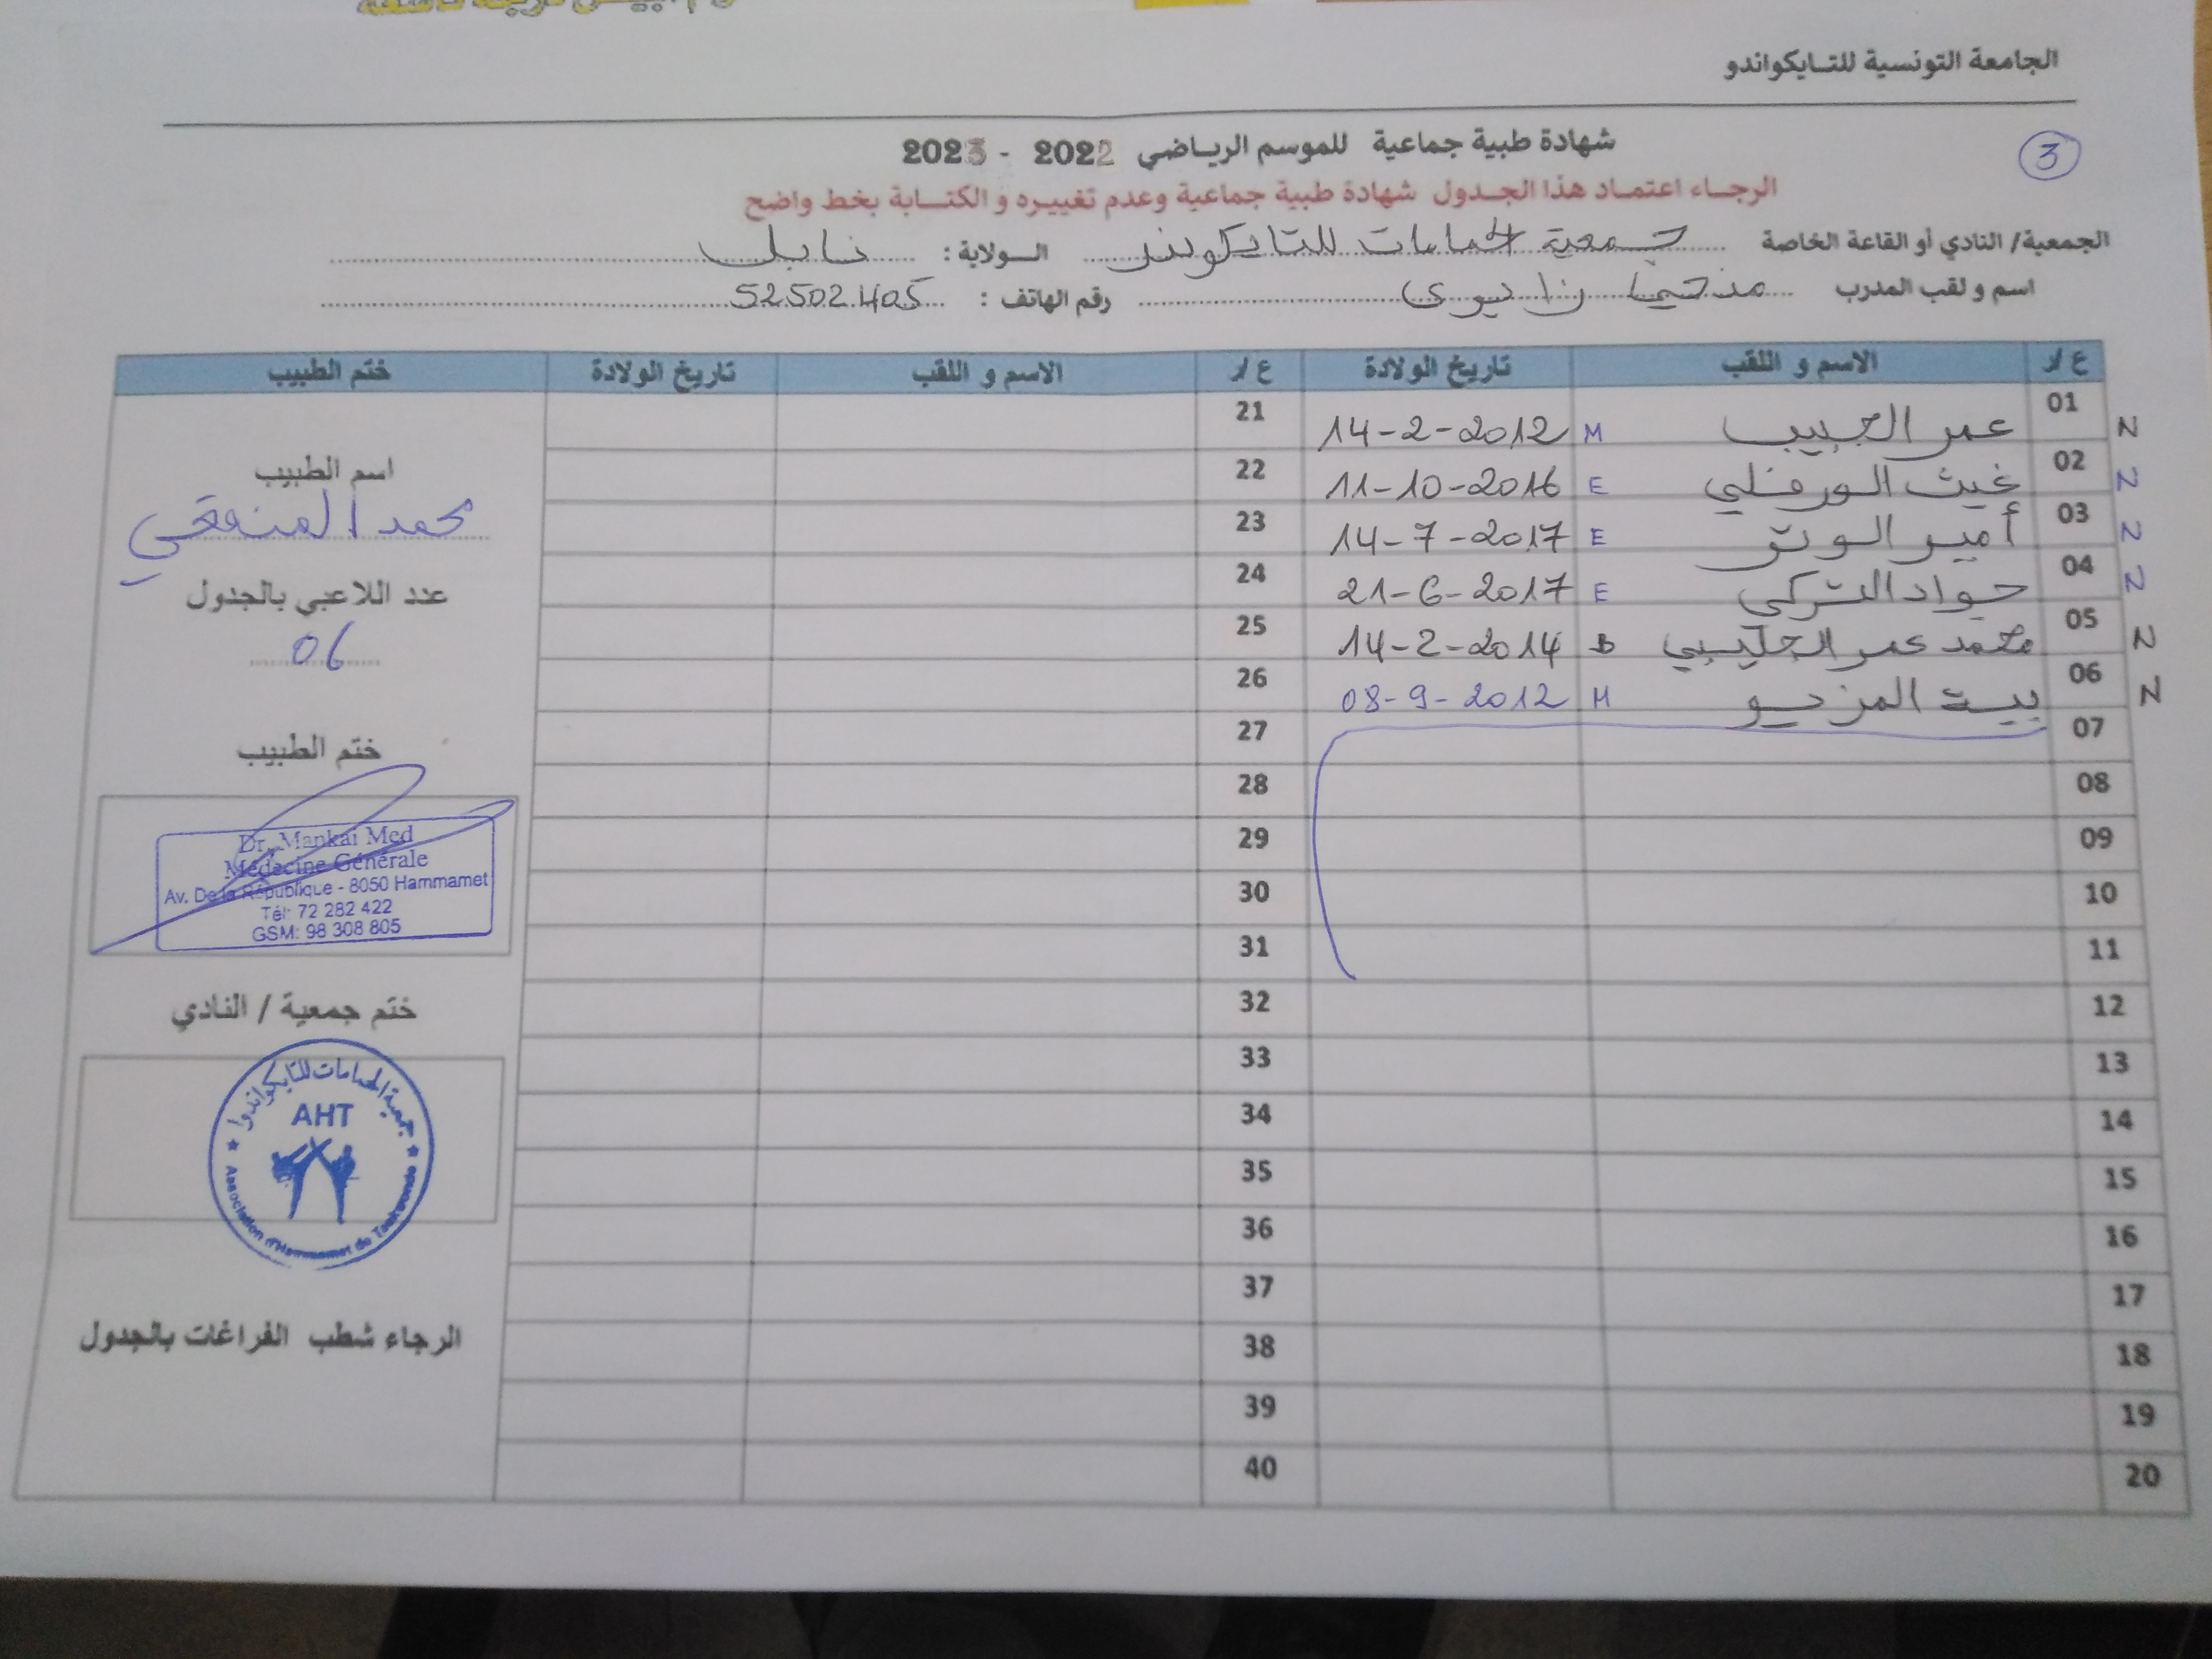 الجامعة التونسية للتايكواندو
3
شهادة طبية جماعية للموسم الرياضي 2022 - 2023
الرجاء اعتماد هذا الجدول شهادة طبية جماعية وعدم تغييره و الكتابة بخط واضح
الجمعية/ النادي أو القاعة الخاصة جمعية الحمامات للتايكوندو الولاية : نابل
اسم و لقب المدرب منجي رقم الهاتف : 52502405
ع/ر الاسم و اللقب تاريخ الولادة ع/ر الاسم و اللقب تاريخ الولادة ختم الطبيب
N 01 عمر M 14-2-2012 21
N 02 غيث الورفلي E 11-10-2016 22
N 03 أمير E 14-7-2017 23
N 04 جواد التركي E 21-6-2017 24
N 05 محمد عمر B 14-2-2014 25
N 06 M 08-9-2012 26
07 27
08 28
09 29
10 30
11 31
12 32
13 33
14 34
15 35
16 36
17 37
18 38
19 39
20 40
اسم الطبيب
محمد
عدد اللاعبي بالجدول
06
ختم الطبيب
Dr. Mankai Med
Médecine Générale
Av. De la République - 8050 Hammamet
Tél: 72 282 422
GSM: 98 308 805
ختم جمعية / النادي
جمعية الحمامات للتايكواندوا
AHT
Association d'Hammamet de Taekwondo
الرجاء شطب الفراغات بالجدول